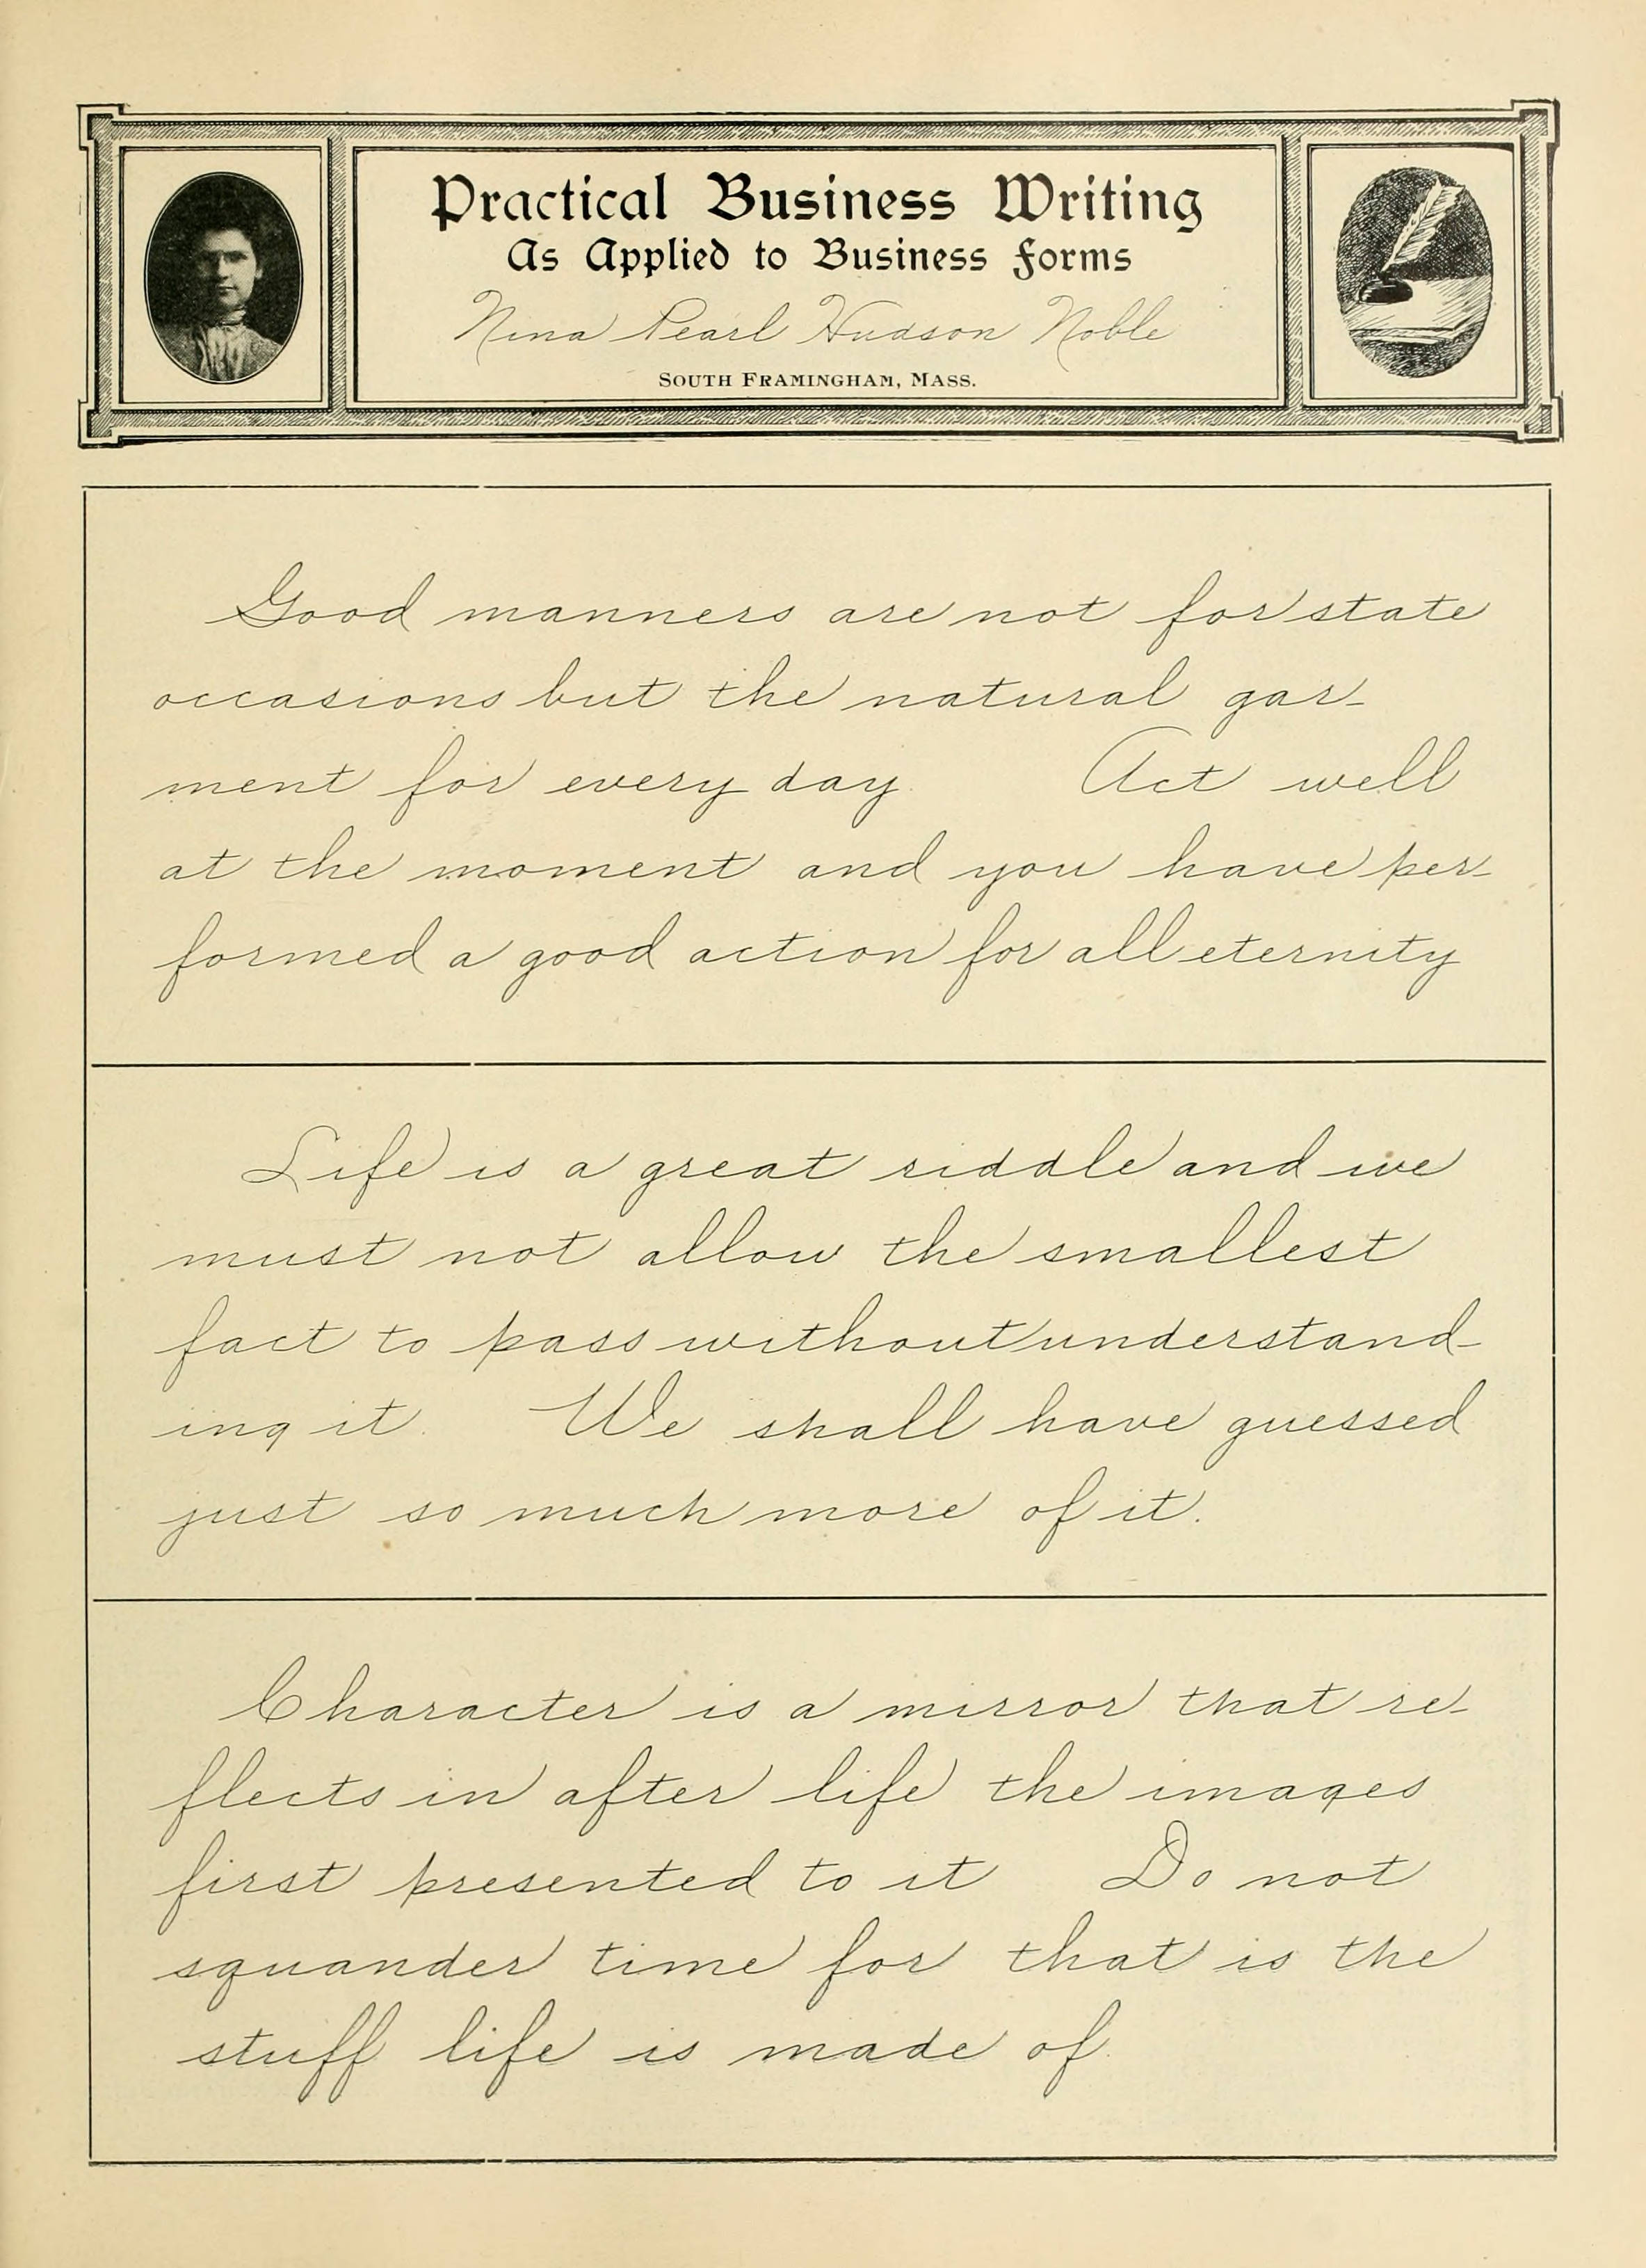 Practical Business Writing
As Applied to Business Forms
Nina Pearl Hudson Noble
SOUTH FRAMINGHAM, MASS.
Good manners are not for state
occasions but the natural gar-
ment for every day. Act well
at the moment and you have per-
formed a good action for all eternity
Life is a great riddle and we
must not allow the smallest
fact to pass without understand-
ing it. We shall have guessed
just so much more of it.
Character is a mirror that re-
flects in after life the images
first presented to it Do not
squander time for that is the
stuff life is made of.